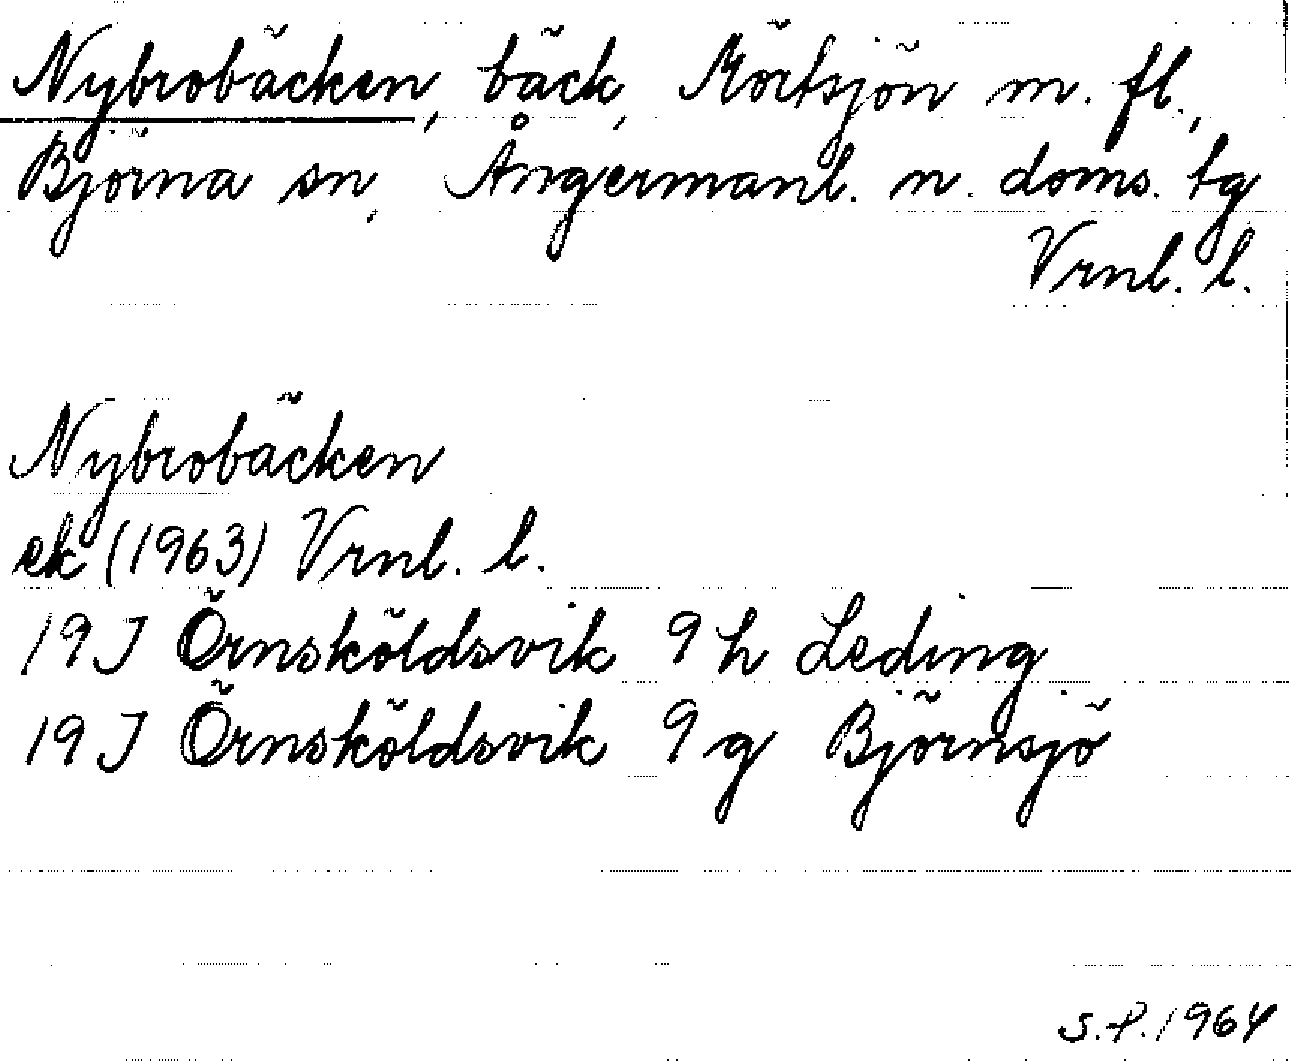 Nybrobäcken, bäck, Mörtsjön m. fl.,
Björna sn, Ångermanl. n. doms. tg
Vrnl. l.
Nybrobäcken
ek (1963) Vrnl. l.
19J Örnsköldsvik 9h Leding
19J Örnsköldsvik 9g Björnsjö
S.P. 1964